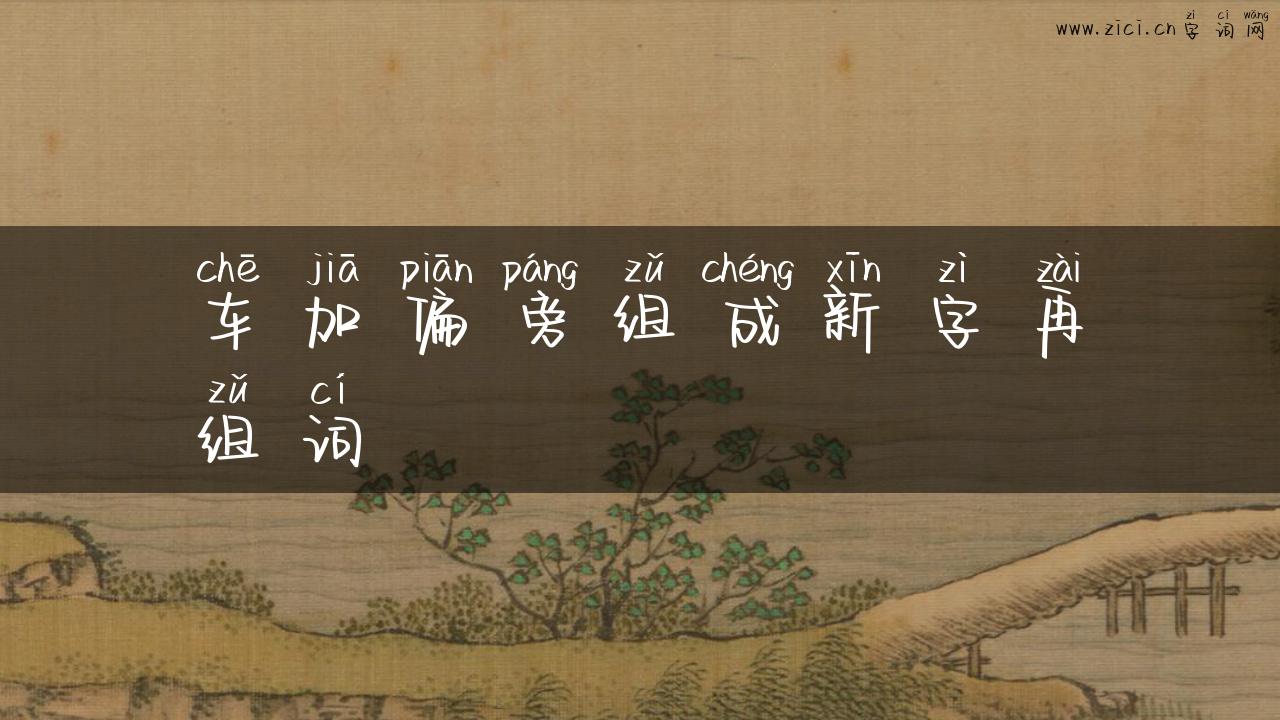 zì cí wǎng
www.zici.cn 字词网
chē jiā piān páng zǔ chéng xīn zì zài
车加偏旁组成新字再
zǔ cí
组词